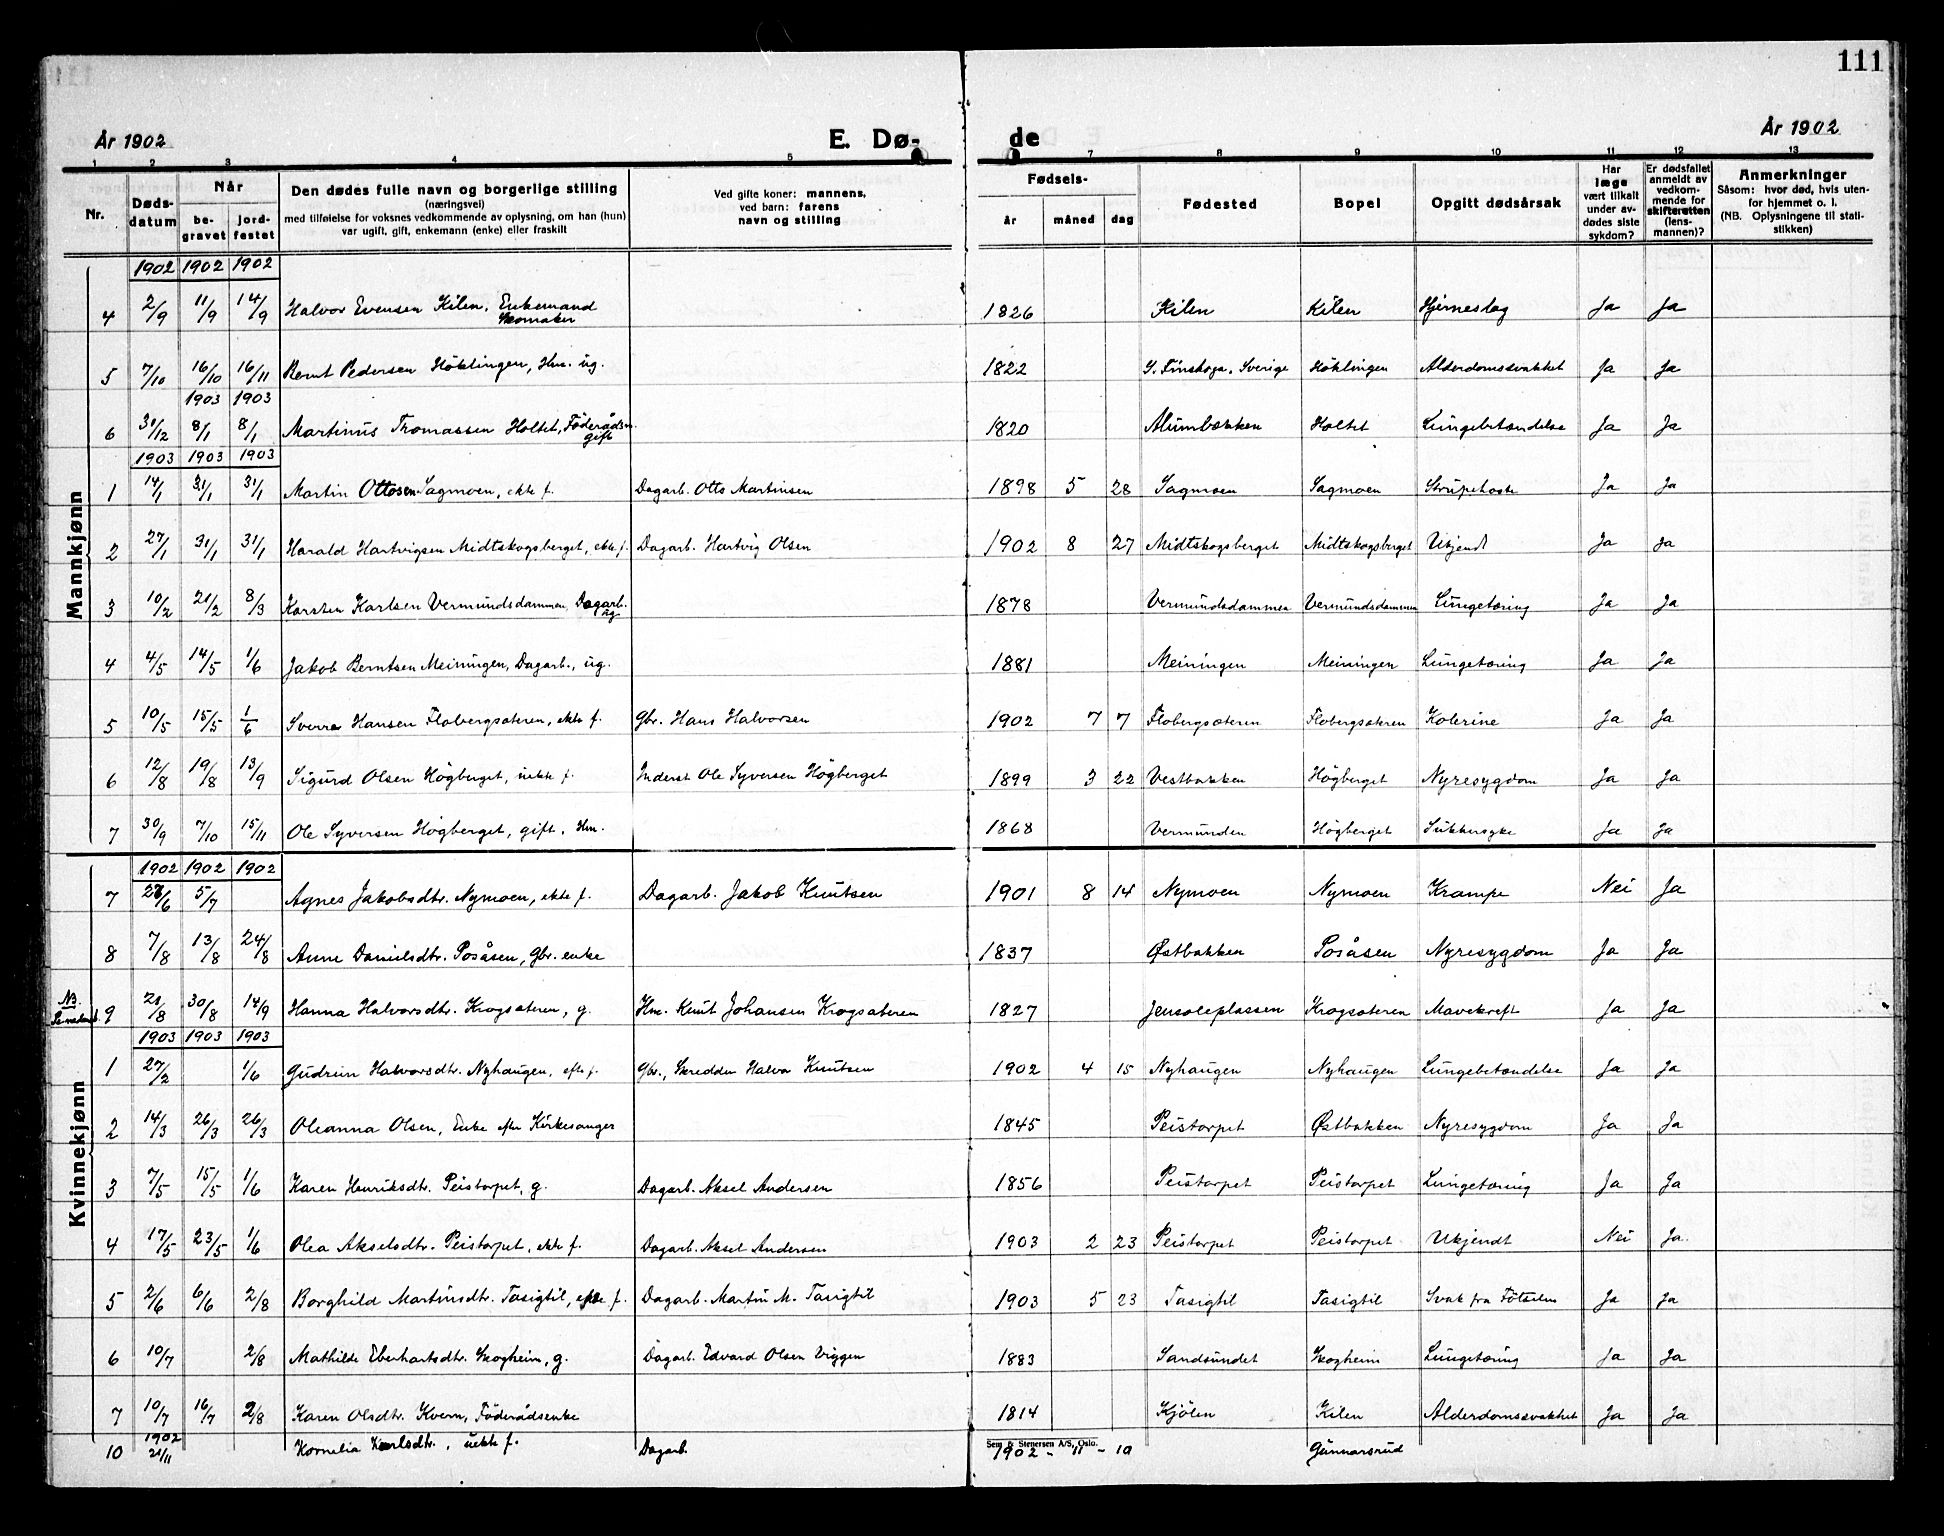 111
År 1902 E. Dø- de År 1902
1 2 3 4 5 7 8 9 10 11 12 13
Nr. Døds-datum Når be-gravet jord-festet Den dødes fulle navn og borgerlige stilling (næringsvei) med tilføielse for voksnes vedkommende av oplysning, om han (hun) var ugift, gift, enkemann (enke) eller fraskilt Ved gifte koner: mannens, ved barn: farens navn og stilling Fødsels- år måned dag Fødested Bopel Opgitt dødsårsak Har læge vært tilkalt under av-dødes siste sykdom? Er dødsfallet anmeldt av vedkom-mende for skifteretten (lens-mannen)? Anmerkninger Såsom: hvor død, hvis uten-for hjemmet o. l. (NB. Oplysningene til stati-stikken)
Mannkjønn
1902 1902 1902
4 2/9 11/9 14/9 Halvor Evensen Kilen, Enkemand Skomaker 1826 Kilen Kilen Hjerneslag Ja Ja
5 7/10 16/10 16/11 Bernt Pedersen Höklingen, Hm. ug. 1822 S. Finskoga, Sverige Höklingen Alderdomssvakket Ja Ja
1903 1903
6 31/12 8/1 8/1 Martinus Tromassen Holtet, Föderådsm. gift 1820 Alumbakken Holtet Lungebetændelse Ja Ja
1903 1903 1903
1 14/1 31/1 31/1 Martin Ottosen Sagmoen, ekte f. Dagarb. Otto Martinsen 1898 5 28 Sagmoen Sagmoen Strupehoste Ja Ja
2 27/1 31/1 31/1 Harald Hartvigsen Midtskogsberget, ekte f. Dagarb. Hartvig Olsen 1902 8 27 Midtskogsberget Midtskogsberget Ukjendt Ja Ja
3 10/2 21/2 8/3 Karsten Karlsen Vermundsdammen, Dagarb. ug 1878 Vermundsdammen Vermundsdammen Lungetæring Ja Ja
4 4/5 14/5 1/6 Jakob Berntsen Meiningen, Dagarb., ug. 1881 Meiningen Meiningen Lungetæring Ja Ja
5 10/5 15/5 1/6 Sverre Hansen Flobergsæteren, ekte f. Gbr. Hans Halvorsen 1902 7 7 Flobergsæteren Flobergsæteren Kolerine Ja Ja
6 12/8 19/8 13/9 Sigurd Olsen Högberget, uekte f. Inderst Ole Syversen Högberget 1899 3 22 Vestbakken Högberget Nyresygdom Ja Ja
7 30/9 7/10 15/11 Ole Syversen Högberget, gift. Hm. 1868 Vermunden Högberget Sukkersyke Ja Ja
Kvinnekjønn
1902 1902 1902
7 27/6 5/7 Agnes Jakobsdtr. Nymoen, ekte f. Dagarb. Jakob Knutsen 1901 8 14 Nymoen Nymoen Krampe Nei Ja
8 7/8 13/8 24/8 Anne Danielsdtr. Posåsen, Gbr. enke 1837 Østbakken Posåsen Nyresygdom Ja Ja
NB.
9 21/8 30/8 14/9 Hanna Halvorsdtr. Krogsæteren, g. Hm. Knut Johansen Krogsæteren 1827 Jensoleplassen Krogsæteren Mavekreft Ja Ja
1903 1903 1903
1 27/2 1/6 Gudrun Halvorsdtr. Nyhaugen, Gbr., Skredder Halvor Knutsen 1902 4 15 Nyhaugen Nyhaugen Lungebetændelse Ja Ja
2 14/3 26/3 26/3 Oleanna Olsen, Enke efter Kirkesanger 1845 Peistorpet Østbakken Nyresygdom Ja Ja
3 7/5 15/5 1/6 Karen Henriksdtr. Peistorpet, g. Dagarb. Aksel Andersen 1856 Peistorpet Peistorpet Lungetæring Ja Ja
4 17/5 23/5 1/6 Olea Akselsdtr. Peistorpet, ekte f. Dagarb. Aksel Andersen 1903 2 23 Peistorpet Peistorpet Ukjendt Nei Ja.
5 2/6 6/6 2/8 Borghild Martinsdtr. Tasigtil, ekte f. Dagarb. Martin M. Tasigtil 1903 5 23 Tasigtil Tasigtil Svak fra Fötselen Ja Ja
6 10/7 2/8 Mathilde Eberhartsdtr. Skogheim, g. Dagarb. Edvard Olsen Viggen 1883 Sandsundet Skogheim Lungetæring Ja Ja
7 10/7 16/7 2/8 Karen Olsdtr. Kvern, Föderådsenke 1814 Kjölen Kilen Alderdomssvakhet Ja Ja
1902
10 21/11 Kornelia Karlsdtr., uekte f. Dagarb. 1902 - 11 - 10 Gunnarsrud
Sem & Stenersen A/S, Oslo.